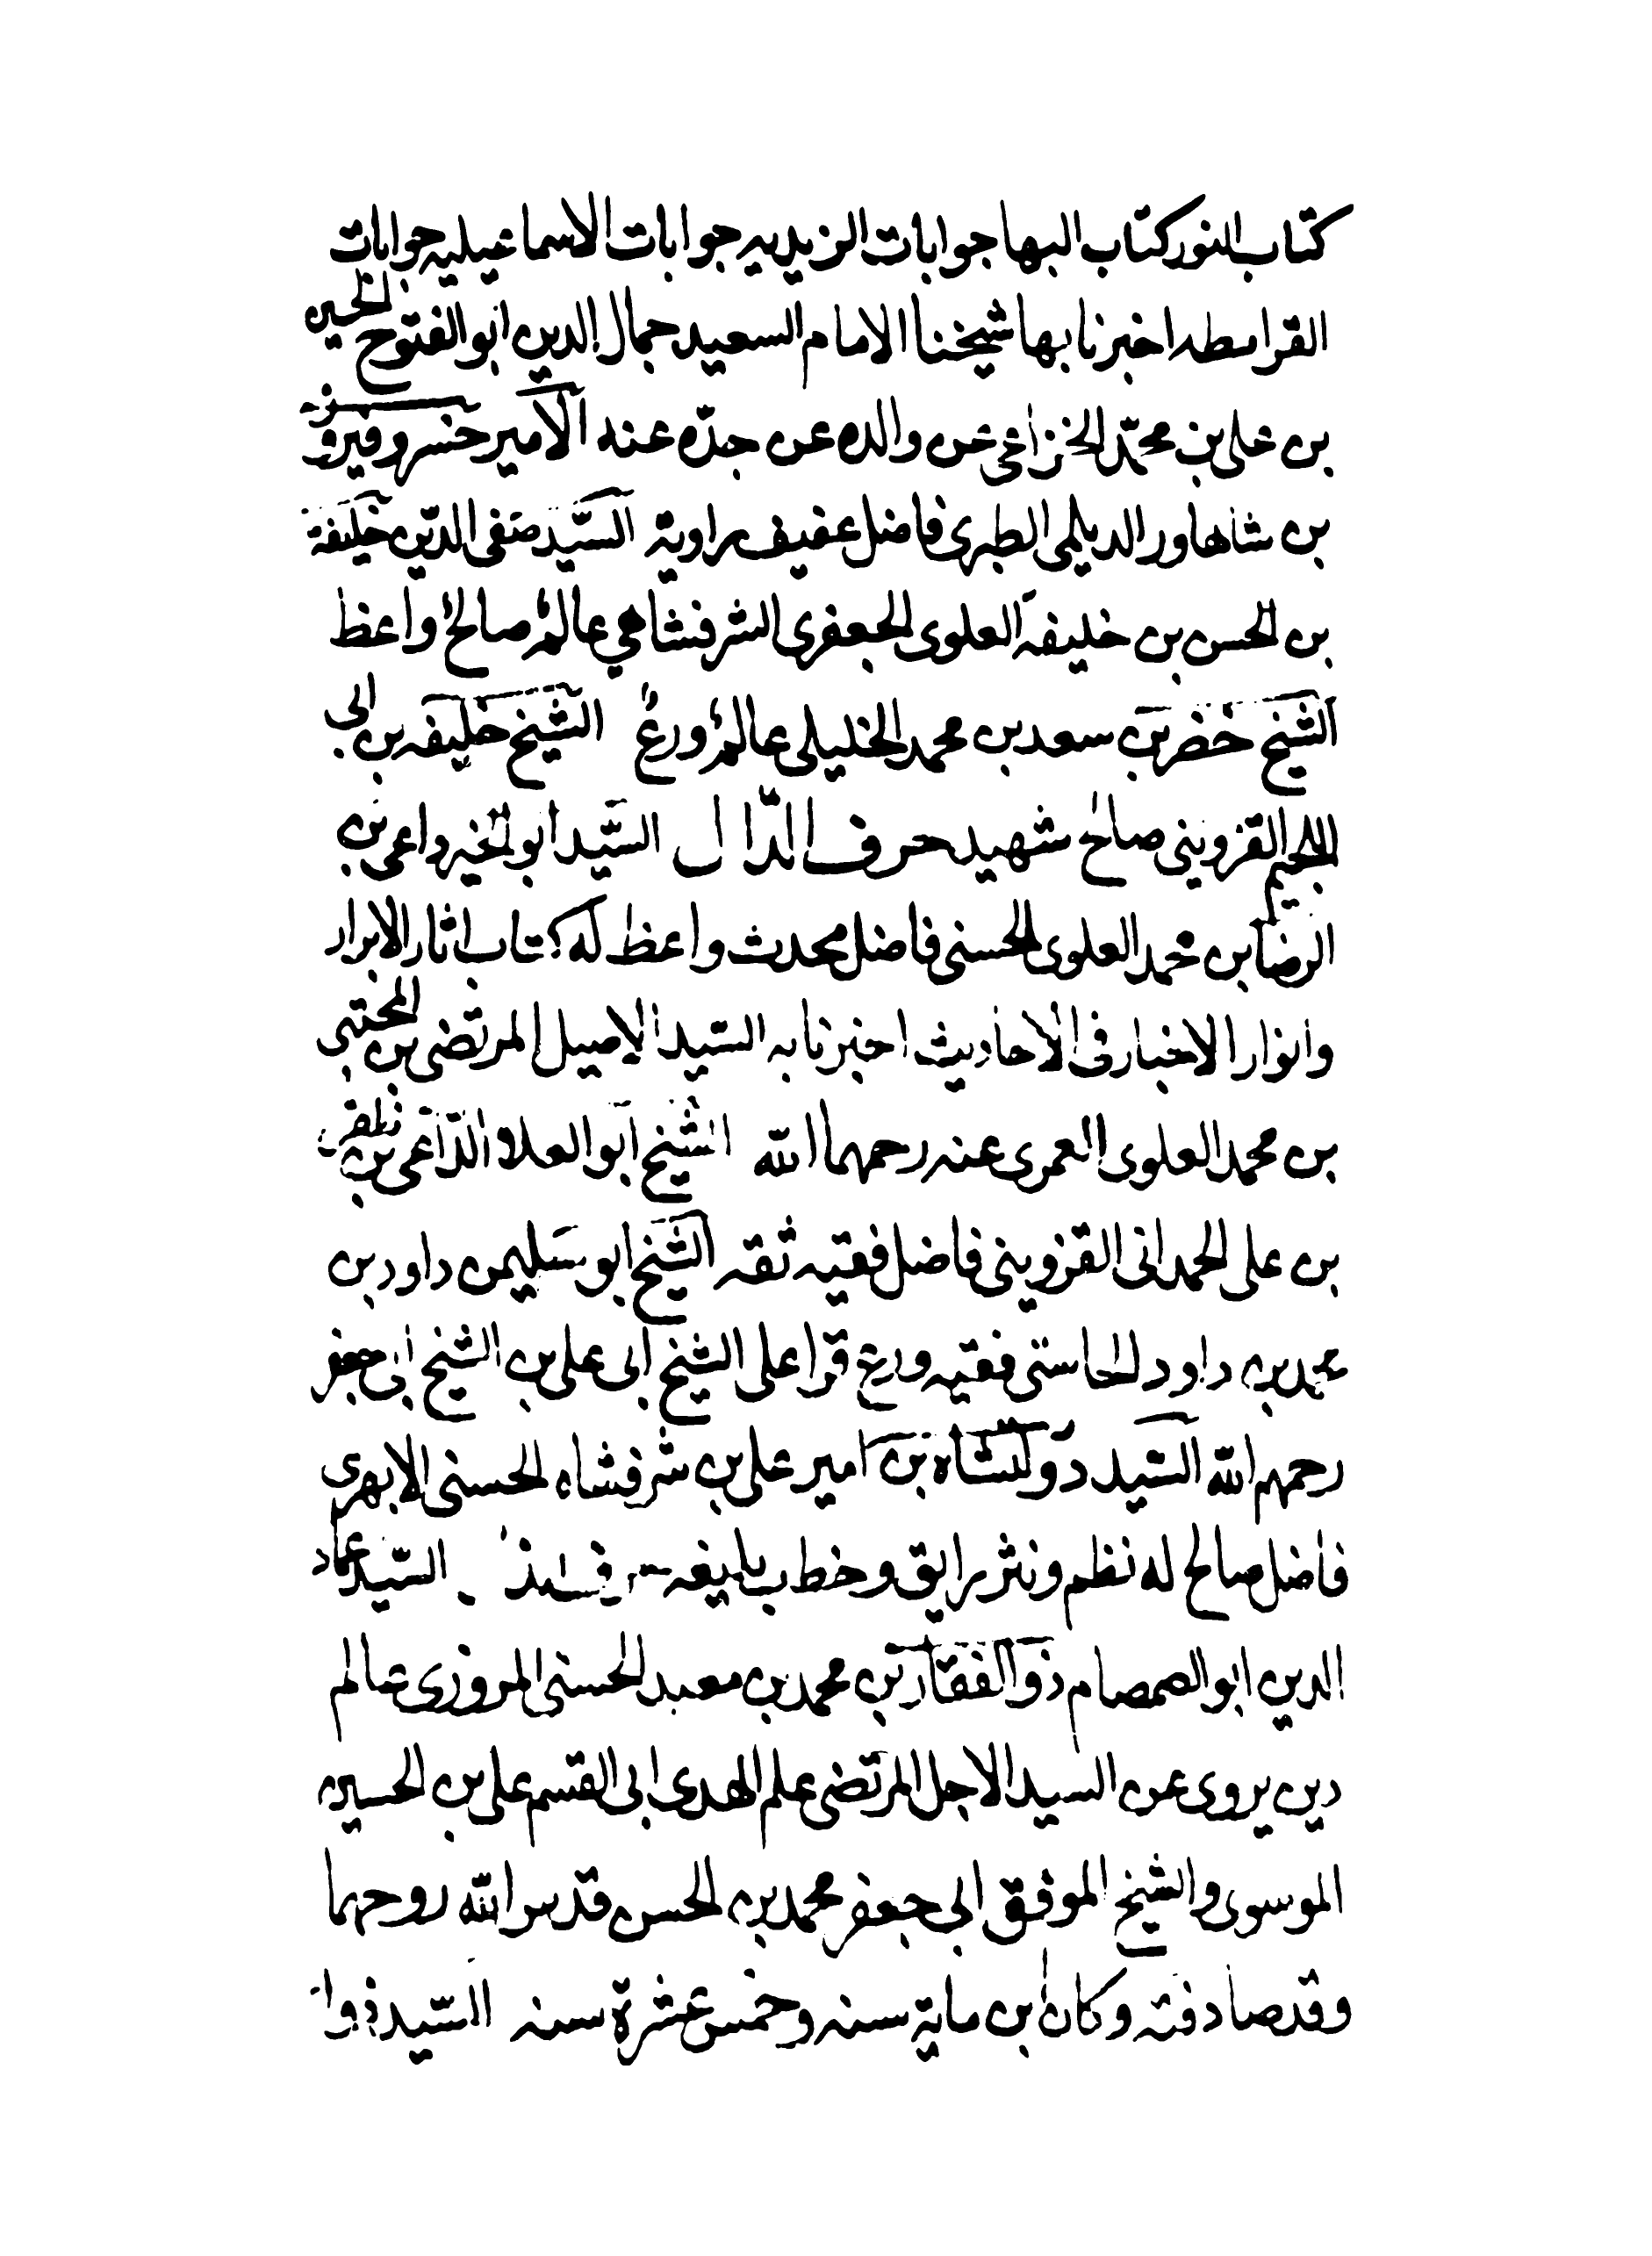 كتاب النور كتاب البها جوابات الزيديه جوابات الاسماعيليه جوابات
القرامطه اخبرنا بها شيخنا الامام السعيد جمال الدين ابو الفتوح الحسين
بن علي بن محمّد الخزاعي عن والده عن جدّه عنه الامير خسرو فيروز
بن شاهاور الديلمي الطبري فاضل عفيف راوية السيّد صفي الدّين خليفة
بن الحسن بن خليفه العلوى الجعفري الشرفشاهي عالمٌ صالحٌ واعظ
الشيخ خضر بن سعد بن محمد الخليلي عالمٌ ورعٌ الشيخ خليفه بن ابي
اللجيم القزويني صالح شهيد حرف الدّال السيّد ابو الخير داعي بن
الرضا بن محمد العلوى الحسنى فاضل محدث واعظ له كتاب اثار الابرار
وانوار الاخبار فى الاحاديث اخبرنا به السّيد الاصيل المرتضى بن المجتبى
بن محمد العلوى العمرى عنه رحمهما الله الشيخ ابو العلا الدّاعي بن ظفر
بن على الحمدانى القزويني فاضل فقيه ثقه الشيخ ابو سليمن داود بن
محمد بن داود الحاستى فقيه ورع قرا على الشيخ ابى على بن الشيخ ابى جعفر
رحمهم الله السّيد دولتشاه بن امير على بن شرفشاه الحسنى الابهرى
فاضل صالح له نظم ونثر رايق وخطب بليغه السّيد عماد
الدين ابو الصمصام ذو الفقار بن محمد بن معبد الحسنى المروزى عالم
دين يروى عن السيد الاجل المرتضى علم الهدى ابى القسم على بن الحسين
الموسوى والشيخ الموفق ابى جعفر محمد بن الحسن قدس الله روحهما
وقد صادفته وكان ابن ماية سنه وخمس عشرة سنه السّيد ذو